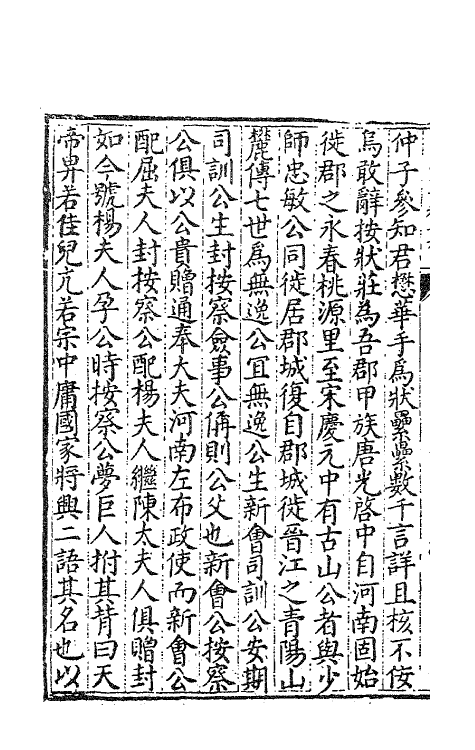 仲子參知君懋華手爲狀纍纍數千言詳且核不佞
烏敢辭按狀莊為吾郡甲族唐光啓中自河南固始
徙郡之永春桃源里至宋慶元中有古山公者與少
師忠敏公司徙居郡城復自郡城徙晉江之青陽山
麓傳七世爲無逸公冝無逸公生新會司訓公安期
司訓公生封按察僉事公偁則公父也新會公按察
公俱以公貴贈通奉大夫河南左布政使而新會公
配屈夫人封按察公配楊夫人繼陳太夫人俱贈封
如今號楊夫人孕公時按察公夢巨人拊其背曰天
帝畀若佳兒亢若宗中庸國家將興二語其名也以